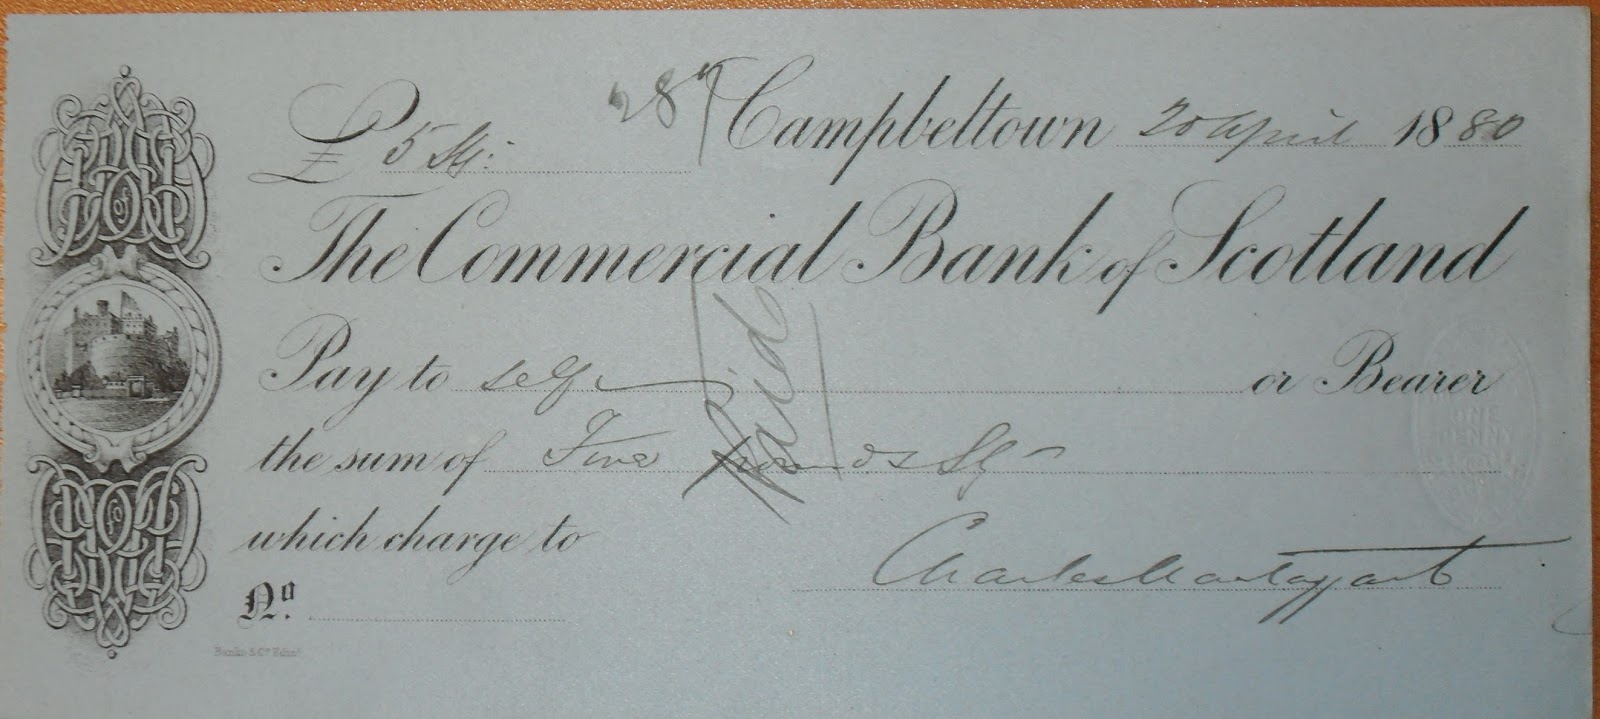 287
£ 5 Stg: Campbeltown 20 April 1880
The Commercial Bank of Scotland
Pay to self or Bearer
Paid
the sum of Five Pounds Stg
which charge to
Charles Mactaggart
No.
Banks & Co. Edinr.
of
of
ONE
PENNY